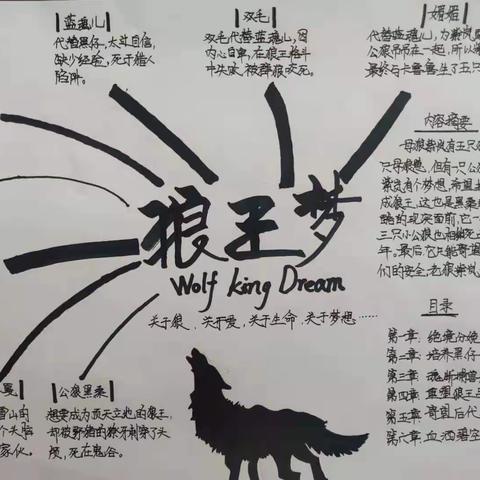 蓝魂儿
代替黑仔,太过自信,
缺少经验,死于猎人
陷阱。
双毛
双毛代替蓝魂儿,因
内心自卑,在狼王格斗
中失败,被群狼咬死。
媚媚
代替蓝魂儿,为
公狼吊吊在一起,所以
最终与卡鲁鲁生了五只
内容摘要
母狼紫岚有五只
只母狼崽,但有一只公
紫岚有个梦想,希望
成狼王,这也是黑桑
酷的现实面前,它一
三只小公狼也相继死
年。最后,它只能寄
们的安全,老狼紫岚
狼王梦
Wolf king Dream
关于狼、关于爱,关于生命,关于梦想……
目录
第一章:绝境分娩
第二章:培养黑仔
第三章:魂断捕兽
第四章:重塑狼王
第五章:寄望后代
第六章:血洒碧空
雪山的
个头脑
家伙。
公狼黑桑
想要成为顶天立地的狼王,
却被野猪的獠牙刺穿了头
颅,死在鬼谷。